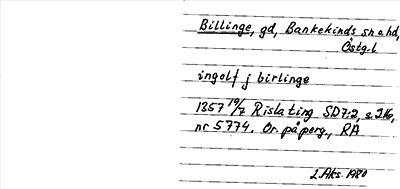 Billinge, gd, Bankekinds sn o hd,
Östg.l
ingolf j birlinge
1357 19/7 Rislating SD7:2, s.216,
nr 5774. Or. på perg., RA
L.Aks. 1980